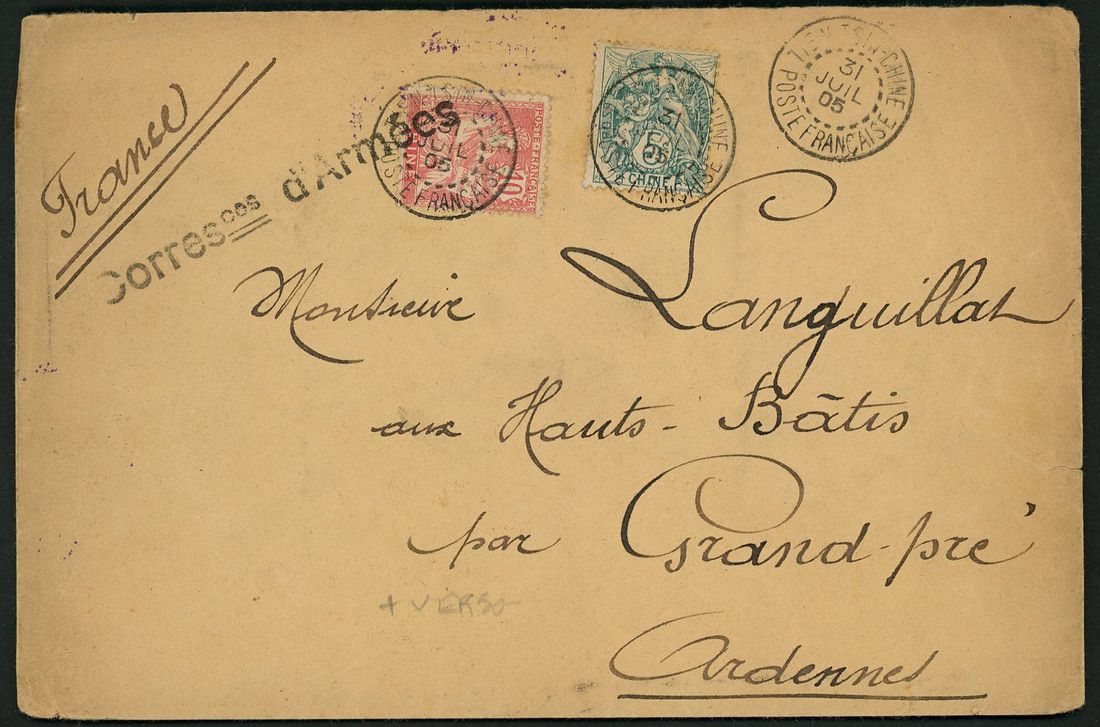 France
Corresces d'Armées
POSTE FRANÇAISE
CHINE
10
JUIL
05
POSTE FRANÇAISE
5
CHINE
31
05
TIEN-TSIN-CHINE
31
JUIL
05
POSTE FRANÇAISE
Monsieur Languillat
aux Hauts-Bâtis
par Grand-pré
+ VERSO
Ardennes